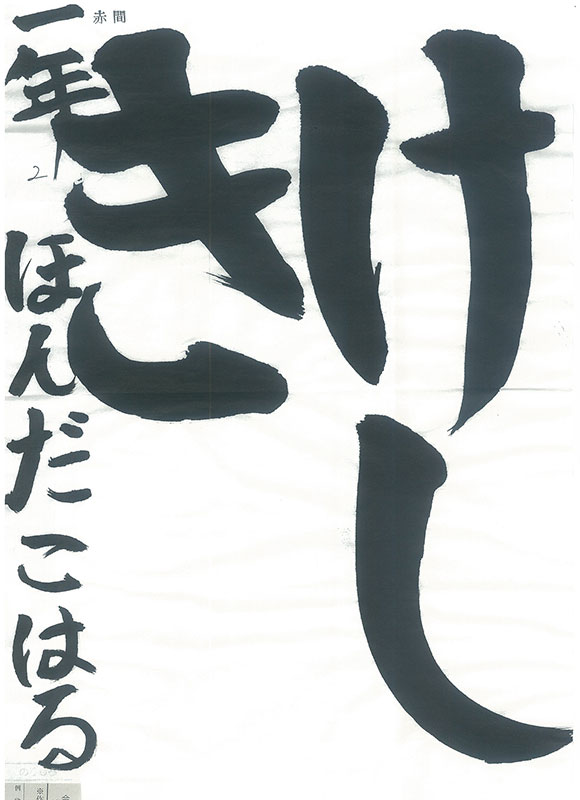 けし
き
赤間
一年 ほんだこはる
2